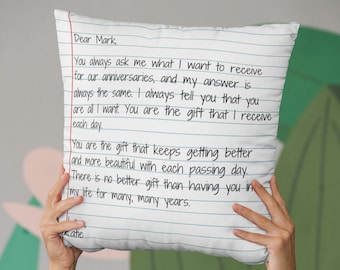 Dear Mark,
You always ask me what I want to receive
for our anniversaries, and my answer is
always the same. I always tell you that you
are all I want. You are the gift that I receive
each day.
You are the gift that keeps getting better
and more beautiful with each passing day.
There is no better gift than having you in
my life for many, many years.
Katie